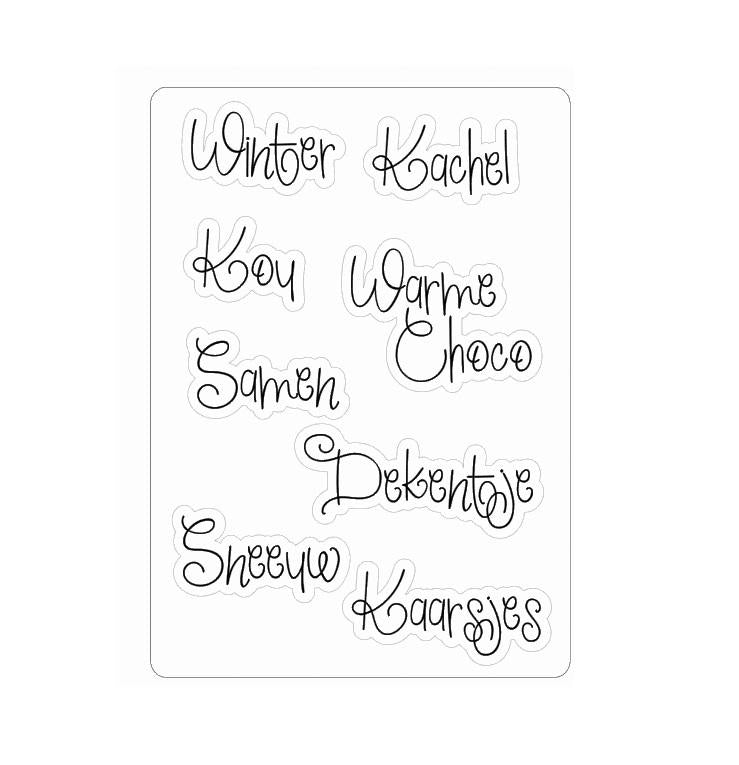 Winter
Kachel
Kou
Warme
Choco
Samen
Dekentje
Sneeuw
Kaarsjes